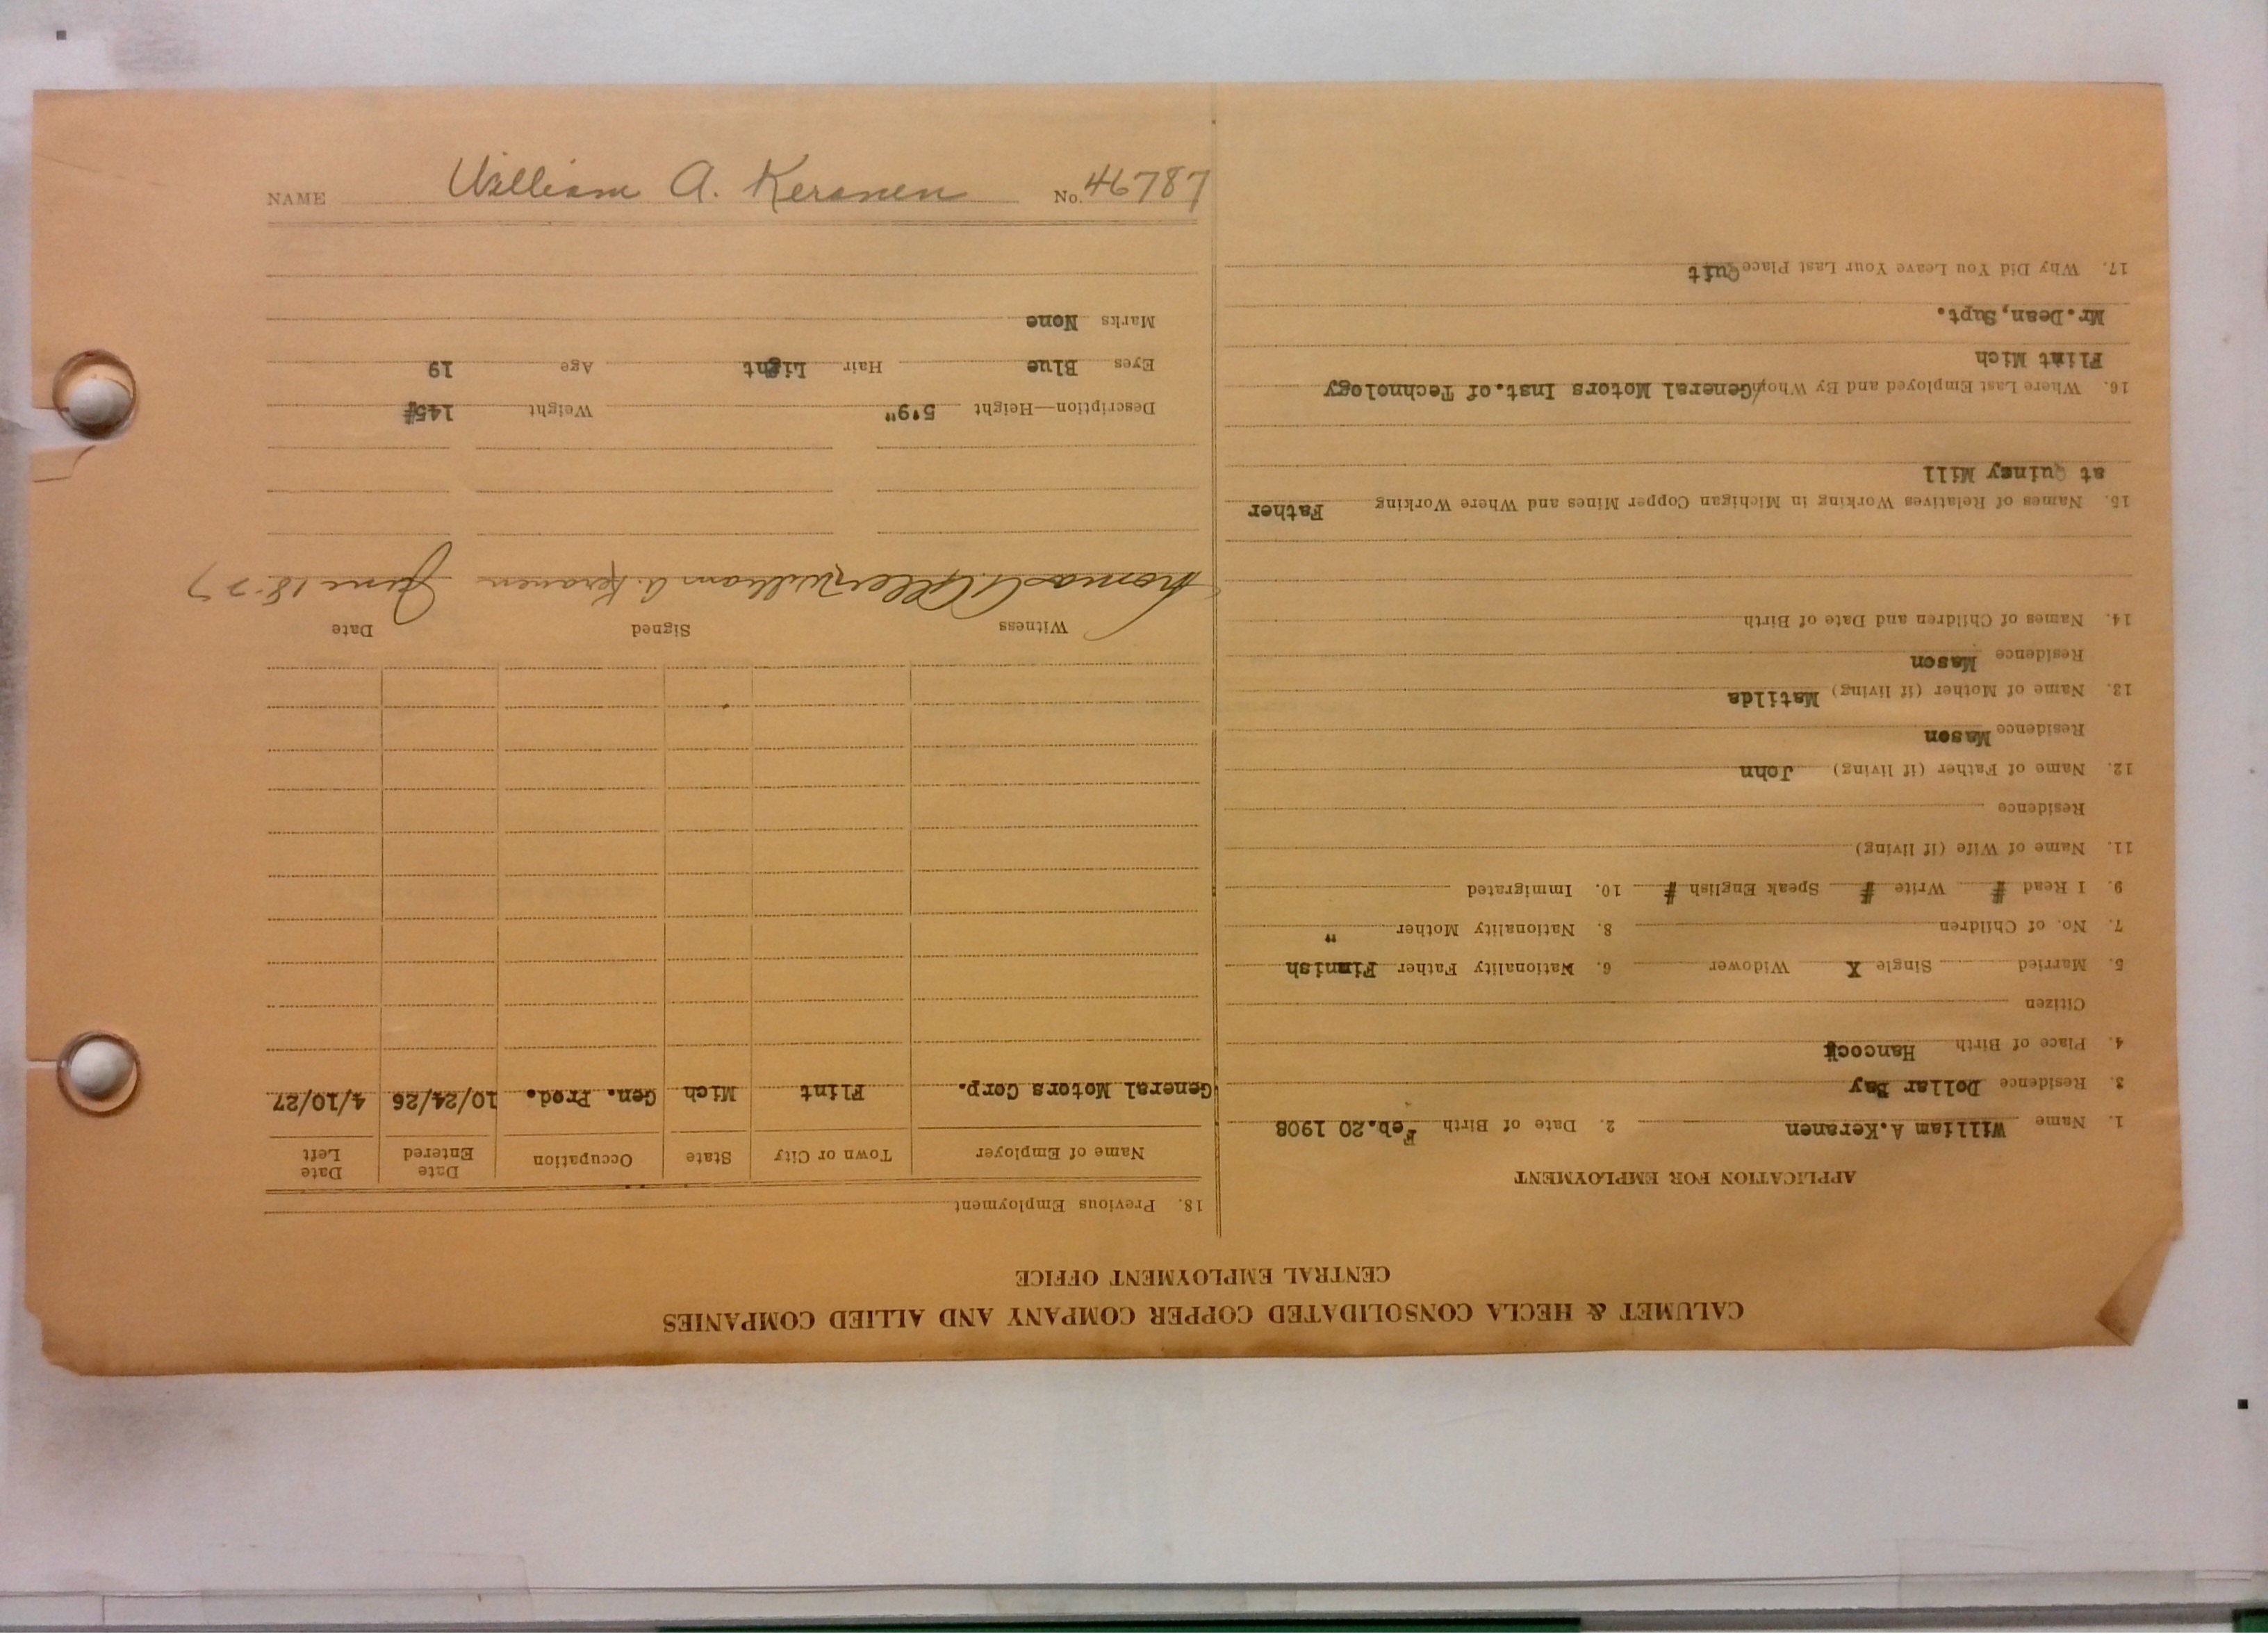 NAME William A. Keranen No. 46787
CALUMET & HECLA CONSOLIDATED COPPER COMPANY AND ALLIED COMPANIES
CENTRAL EMPLOYMENT OFFICE
APPLICATION FOR EMPLOYMENT
1. Name William A.Keranen 2. Date of Birth Feb.20 1908
3. Residence Dollar Bay
4. Place of Birth Hancock
Citizen
5. Married Single X Widower 6. Nationality Father Finnish
7. No. of Children 8. Nationality Mother "
9. I Read # Write # Speak English # 10. Immigrated
11. Name of Wife (if living)
Residence
12. Name of Father (if living) John
Residence Mason
13. Name of Mother (if living) Matilda
Residence Mason
14. Names of Children and Date of Birth
15. Names of Relatives Working in Michigan Copper Mines and Where Working Father
at Quincy Mill
16. Where Last Employed and By Whom General Motors Inst.of Technology
Flint Mich
Mr.Dean,Supt.
17. Why Did You Leave Your Last Place Quit
18. Previous Employment
Name of Employer Town or City State Occupation Date Entered Date Left
General Motors Corp. Flint Mich Gen. Prod. 10/24/26 4/10/27
Witness Signed Date
Thomas Allen William A. Keranen June 18-27
Description—Height 5'9" Weight 145#
Eyes Blue Hair Light Age 19
Marks None